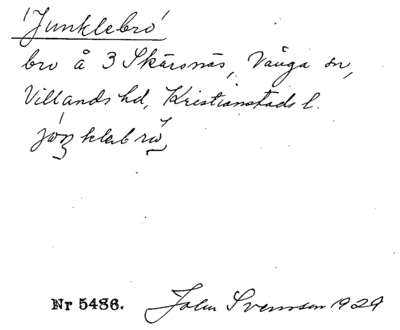 'Junklebro'
bro å 3 Skärsnäs, Vånga sn,
Villands hd, Kristianstads l.
Nr 5486. John Svensson 1929